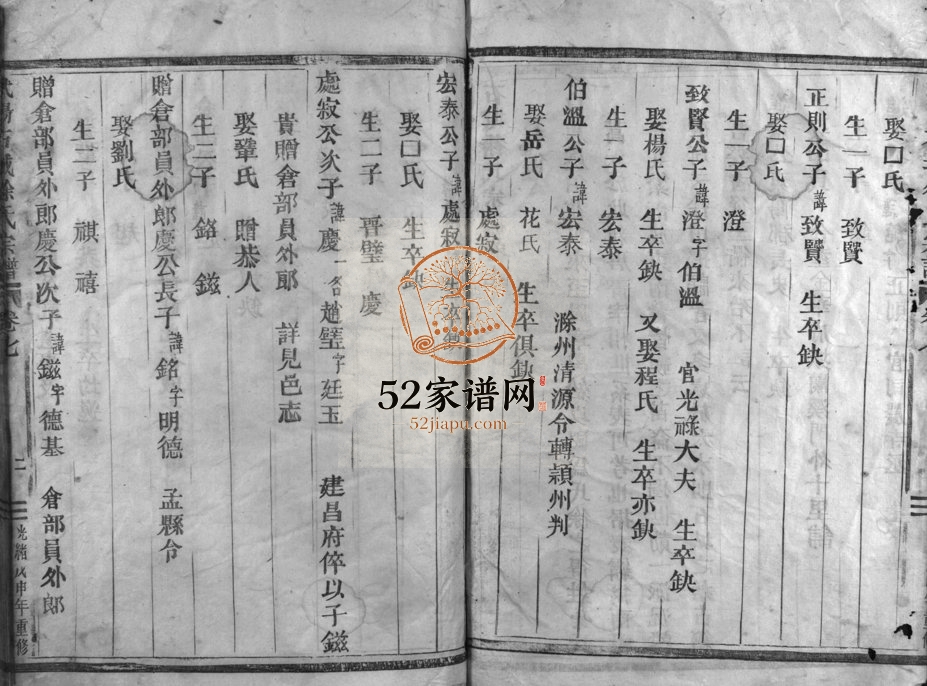 娶口氏
生一子 致賢
正則公子諱致賢 生卒缺
娶口氏
生一子 澄
致賢公子諱澄字伯溫 官光祿大夫 生卒缺
娶楊氏 生卒缺 又娶程氏 生卒亦缺
生一子 宏泰
伯溫公子諱宏泰 滁州清源令轉穎州判
娶岳氏 花氏 生卒俱缺
生一子 處寂
宏泰公子諱處寂 生卒缺
娶口氏 生卒缺
生二子 晉璧 慶
處寂公次子諱慶一名趙璧字廷玉 建昌府倅以子鎡
貴贈倉部員外郎 詳見邑志
娶鞏氏 贈恭人
生二子 銘 鎡
贈倉部員外郎慶公長子諱銘字明德 孟縣令
娶劉氏
生二子 祺 禧
贈倉部員外郎慶公次子諱鎡字德基 倉部員外郎
氏宗譜 卷七
光緒戊申年重修
52家谱网
52jiapu.com